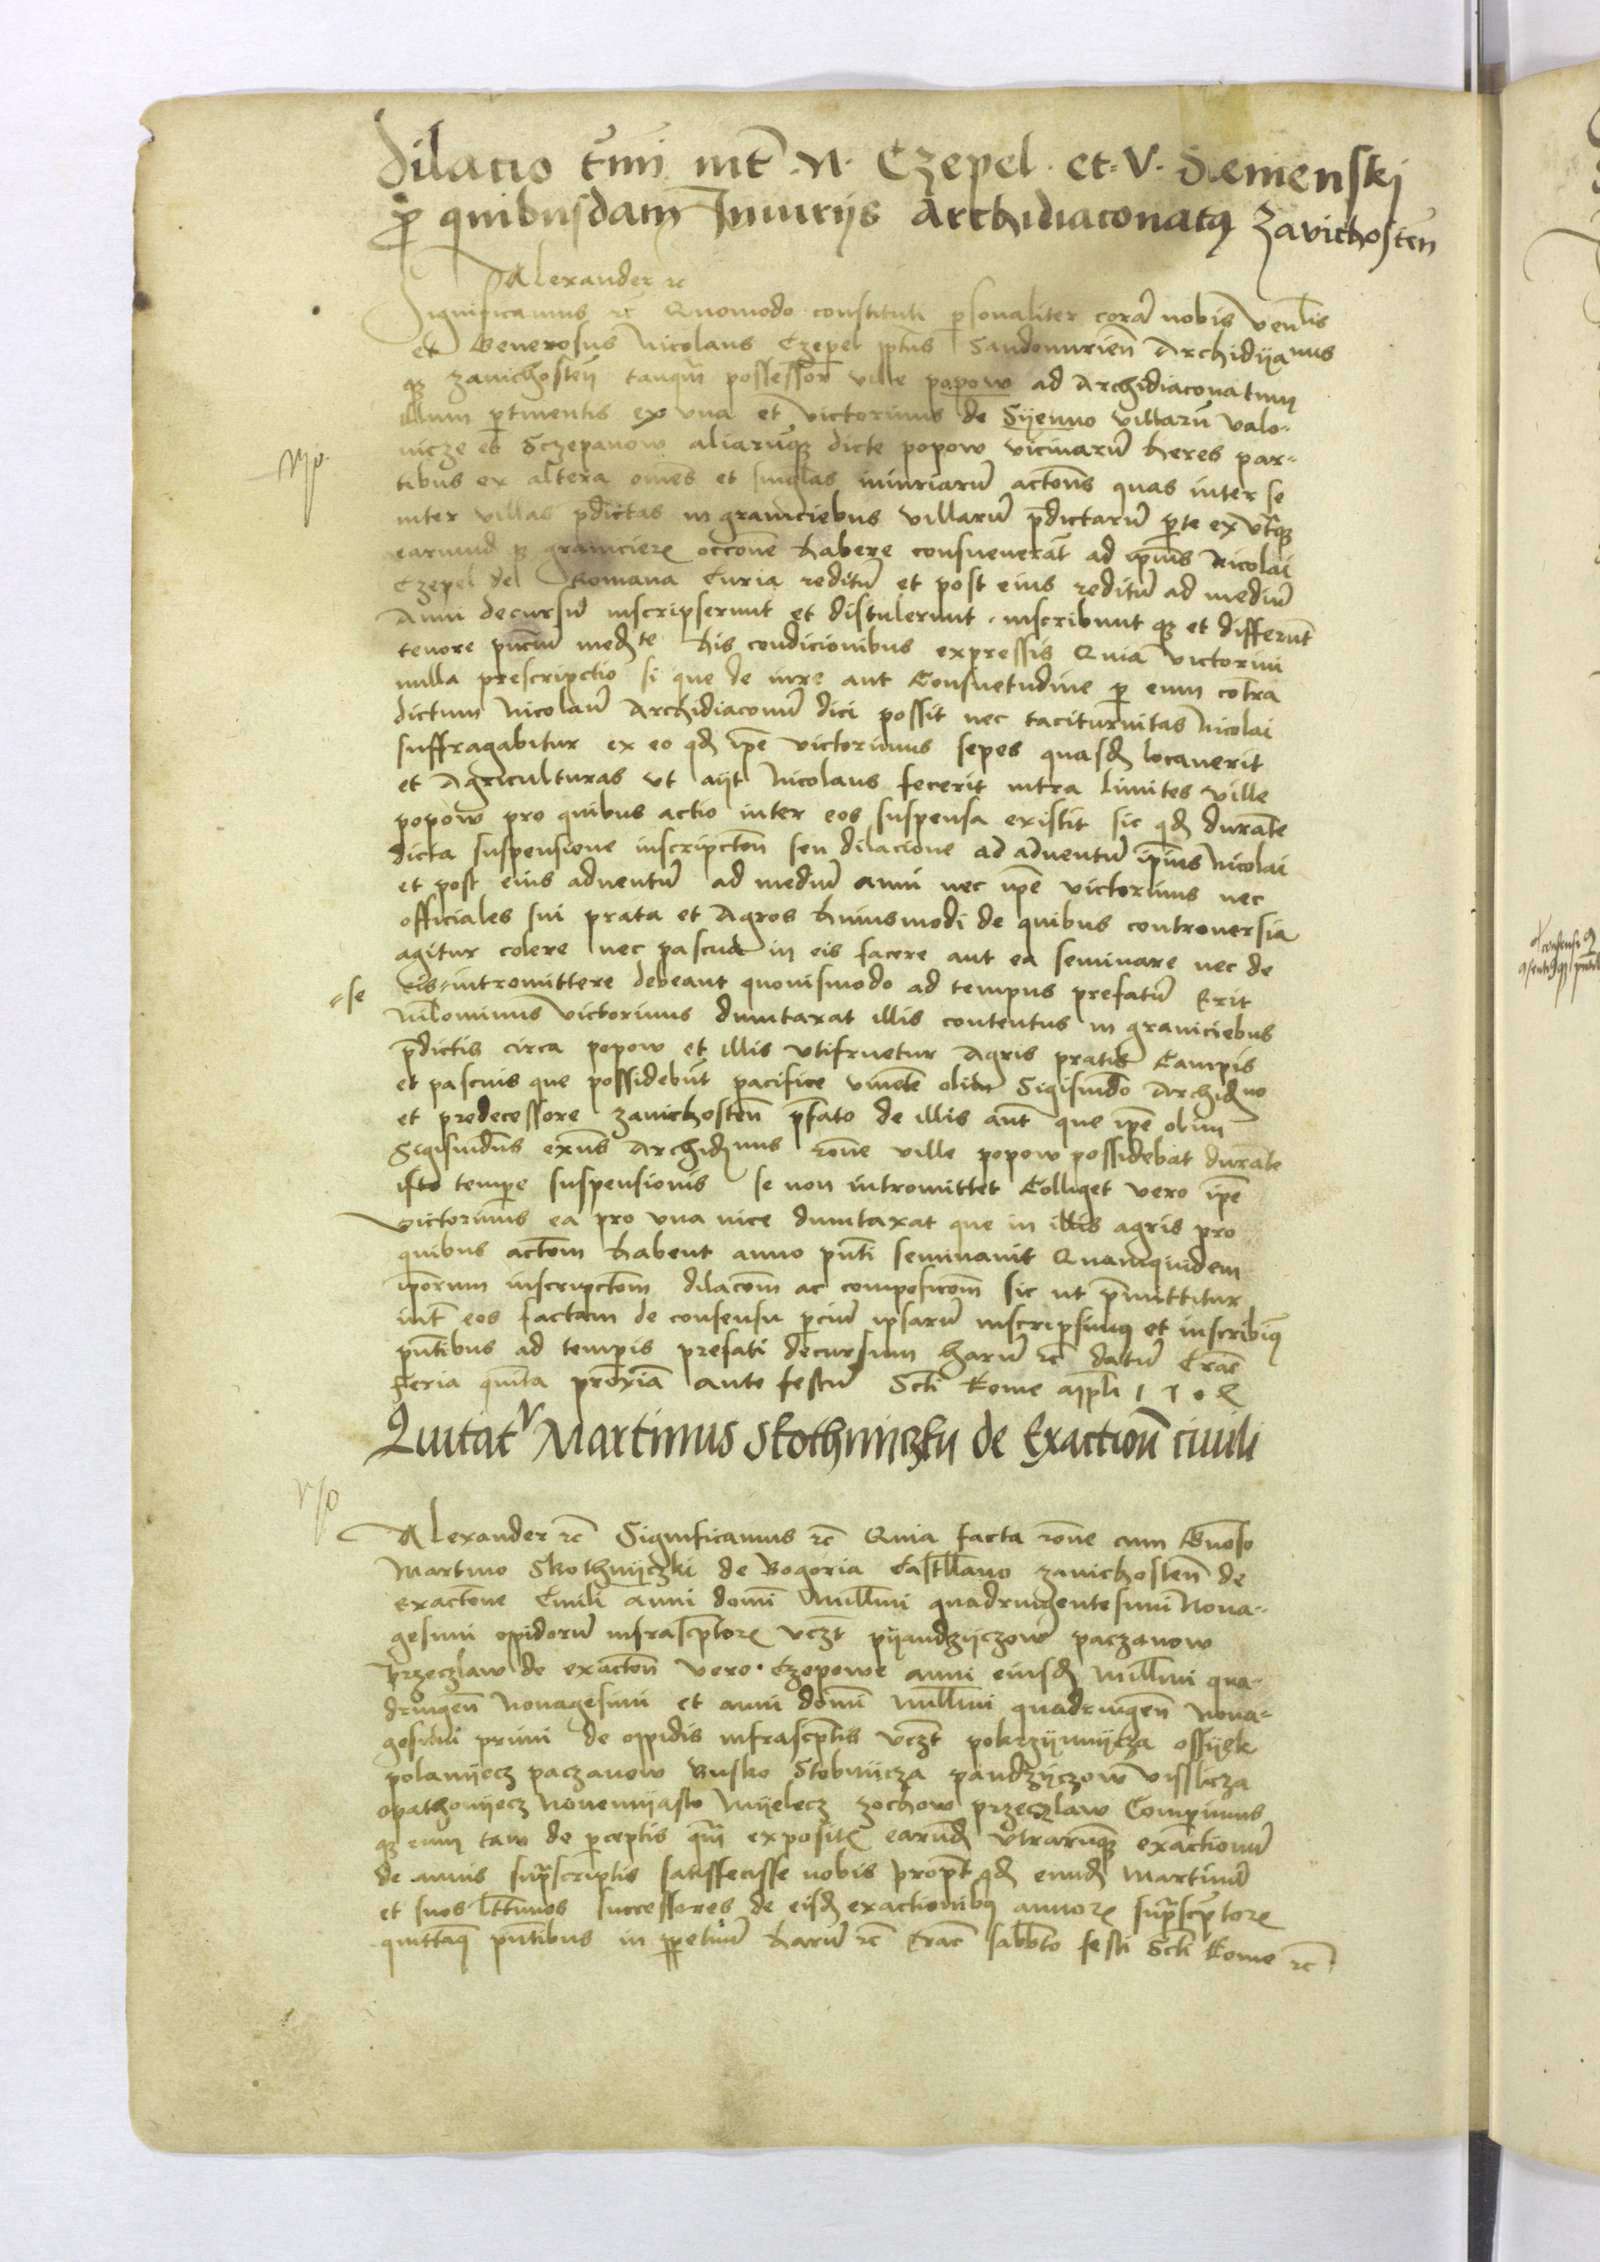 Dilacio t̄mi int̄ N. Czepel et V. Sienienski
ꝓ quibusdam Iniuriis Archidiaconatꝰ Zavichosten̄
Alexander ꝛc
Significamus ꝛc Quomodo constituti personaliter corā nobis Ven̄lis
et Generosus Nicolaus Czepel Sandomirien̄ Archidiianus
qꝫ zauichosten̄ tanqm̄ possessor ville popow ad Archidiaconatum
illum ꝑtinentis ex vna et victorinus de Syenno villarū Valo-
nicze et Sczepanow aliarūqꝫ dicte popow vicinarū heres par-
tibus ex altera om̄es et singlas iniuriarū actōns quas inter se
inter villas p̄dictas in graniciebus villarū p̄dictarū ꝑte ex vtqꝫ
earund granicierꝝ occōne habere consueuerāt ad ip̄ius Nicolai
Czepel de Romana Curia reditū et post eius reditū ad mediū
Anni decursū inscripserunt et distulerunt inscribunt qꝫ et differūt
tenore pn̄ciū med̄te his condicionibus expressis Quia victorini
nulla prescripctio si que de iure aut Consuetudine ꝑ eum cōtra
dictum Nicolaū Archidiaconū dici possit nec taciturnitas Nicolai
suffragabitur ex eo qđ ip̄e victorinus sepes quasđ locauerit
et Agriculturas vt ayt Nicolaus fecerit intra limites ville
popow pro quibus actio inter eos suspensa existit sic qđ durāte
dicta suspensione inscripctōn seu dilacione ad aduentū ip̄ius Nicolai
et post eius aduentū ad mediū anni nec ip̄e victorinus nec
officiales sui prata et Agros huiusmodi de quibus controuersia
agitur colere nec pascua in eis facere aut ea seminare nec de
se
eis intromittere debeant quouismodo ad tempus prefatū Erit
nilominus victorinus dumtaxat illis contentus in graniciebus
p̄dictis circa popow et illis vtifruetur Agris pratis Campis
et pascuis que possidebūt pacifice viuēte olim Sigismūdo Archiđno
et predecessore zauichosten̄ p̄fato de illis aūt que ip̄e olim
Sigismūdus Archiđnus rōne ville popow possidebat durāte
isto tempe suspensionis se non intromittet Colliget vero ip̄e
victorinus ea pro vna vice dumtaxat que in illis agris pro
quibus actōm habent anno pn̄ti seminauit Quamquidem
ip̄orum inscripctōm dilacōm ac composicōm sic ut p̄mittitur
int̄ eos factam de consensu ꝑciū ipsarū inscripsimꝰ et inscribimꝰ
pn̄tibus ad tempis prefati decursum harū ꝛc datū Crac̄
feria quīta proxīa ante festū Scti
Quitatʳ Martinus Skothniczky de Exactioū ciuili
Alexander ꝛc Significamus ꝛc Quia facta rōne cum Gn̄oso
Martino Skothnyczki de Bogoria Castllano zauichosten̄ de
exactōne Ciuili anni domī Mill̄mi quadringentesimi Nona-
gesimi opidorū infrascptorꝝ vcꝫt pyandzyczow paczanow
przeczlaw de exactōn vero Czopowe anni eiusđ Mill̄mi qua-
dringen̄ Nonagesimi et anni domī Mill̄mi quadringen̄ Nona-
gesimi primi de oppidis infrascptis vcꝫt pokrzywnycza ossyek
polanyecz paczanow Busko Stobnicza pandzyczow visslicza
opathowyecz Nouemyasto Myelecz zochow przeczlaw Comperimus
qꝫ eum tam de ꝑceptis qm̄ expositꝭ earūđ vtrarūqꝫ exactionū
de annis supͣscriptis satisfecisse nobis propt̄ qđ eunđ Martinū
et suos lttimos successores de eisđ exactionibꝰ annorꝝ supͣscptorꝝ
quittamꝰ pn̄tibus in ꝑpetuū harū ꝛc Crac̄ sabbto festi Scti ꝛc